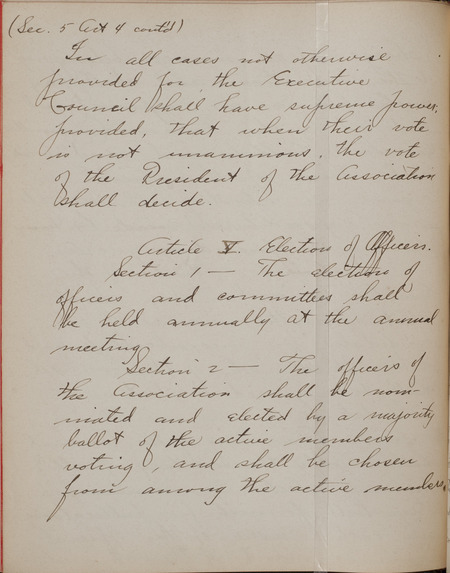 (Sec. 5 Art 4 cont'd)
In all cases not otherwise
provided for the Executive
Council shall have supreme power,
provided, that when their vote
is not unanimous, the vote
of the President of the Association
shall decide.
Article V. Election of Officers.
Section 1 — The election of
officers and committees shall
be held annually at the annual
meeting
Section 2 — The officers of
the Association shall be nom-
inated and elected by a majority
ballot of the active members
voting, and shall be chosen
from among the active members.